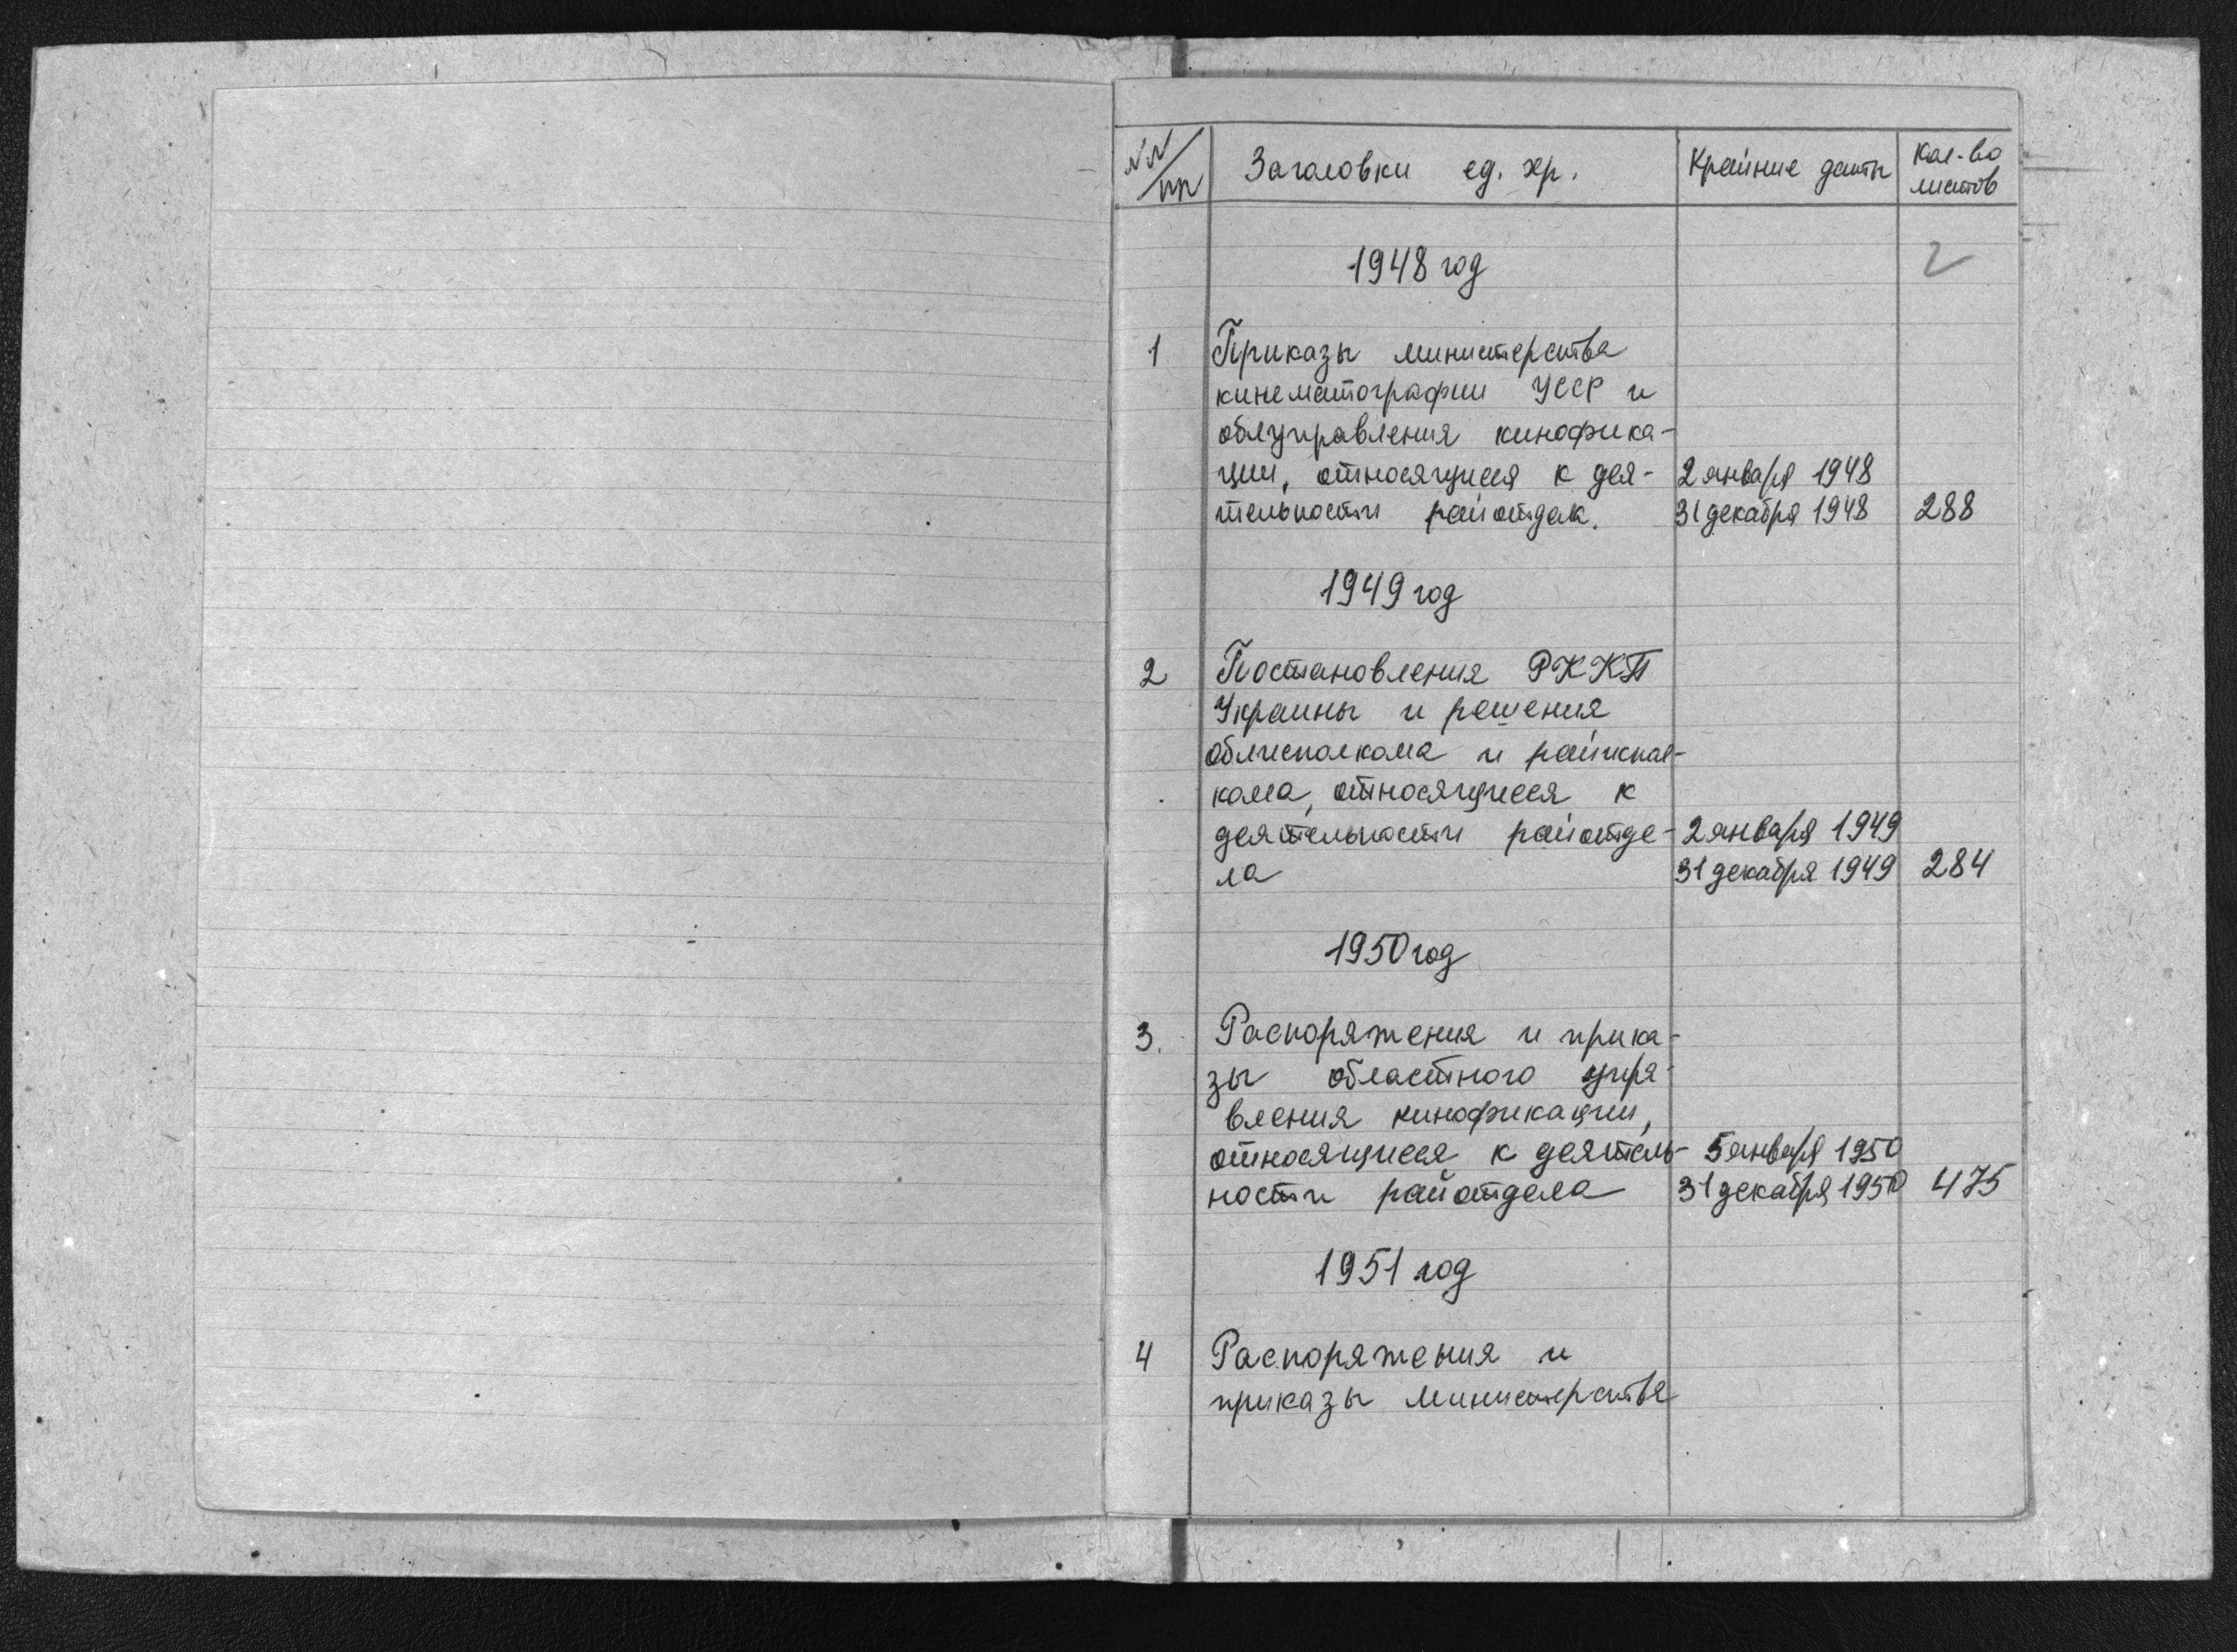 №№ пп Заголовки ед. хр. Крайние даты Кол-во листов
2
1948 год
1 Приказы министерства
кинематографии УССР и
облуправления кинофика-
ции, относящиеся к дея- 2 января 1948
тельности райотдел. 31 декабря 1948 288
1949 год
2 Постановления РККП
Украины и решения
облисполкома и райиспол-
кома, относящиеся к
деятельности райотде- 2 января 1949
ла 31 декабря 1949 284
1950 год
3. Распоряжения и прика-
зы областного упра-
вления кинофикации,
относящиеся к деятель- 5 января 1950
ности райотдела 31 декабря 1950 475
1951 год
4 Распоряжения и
приказы министерства